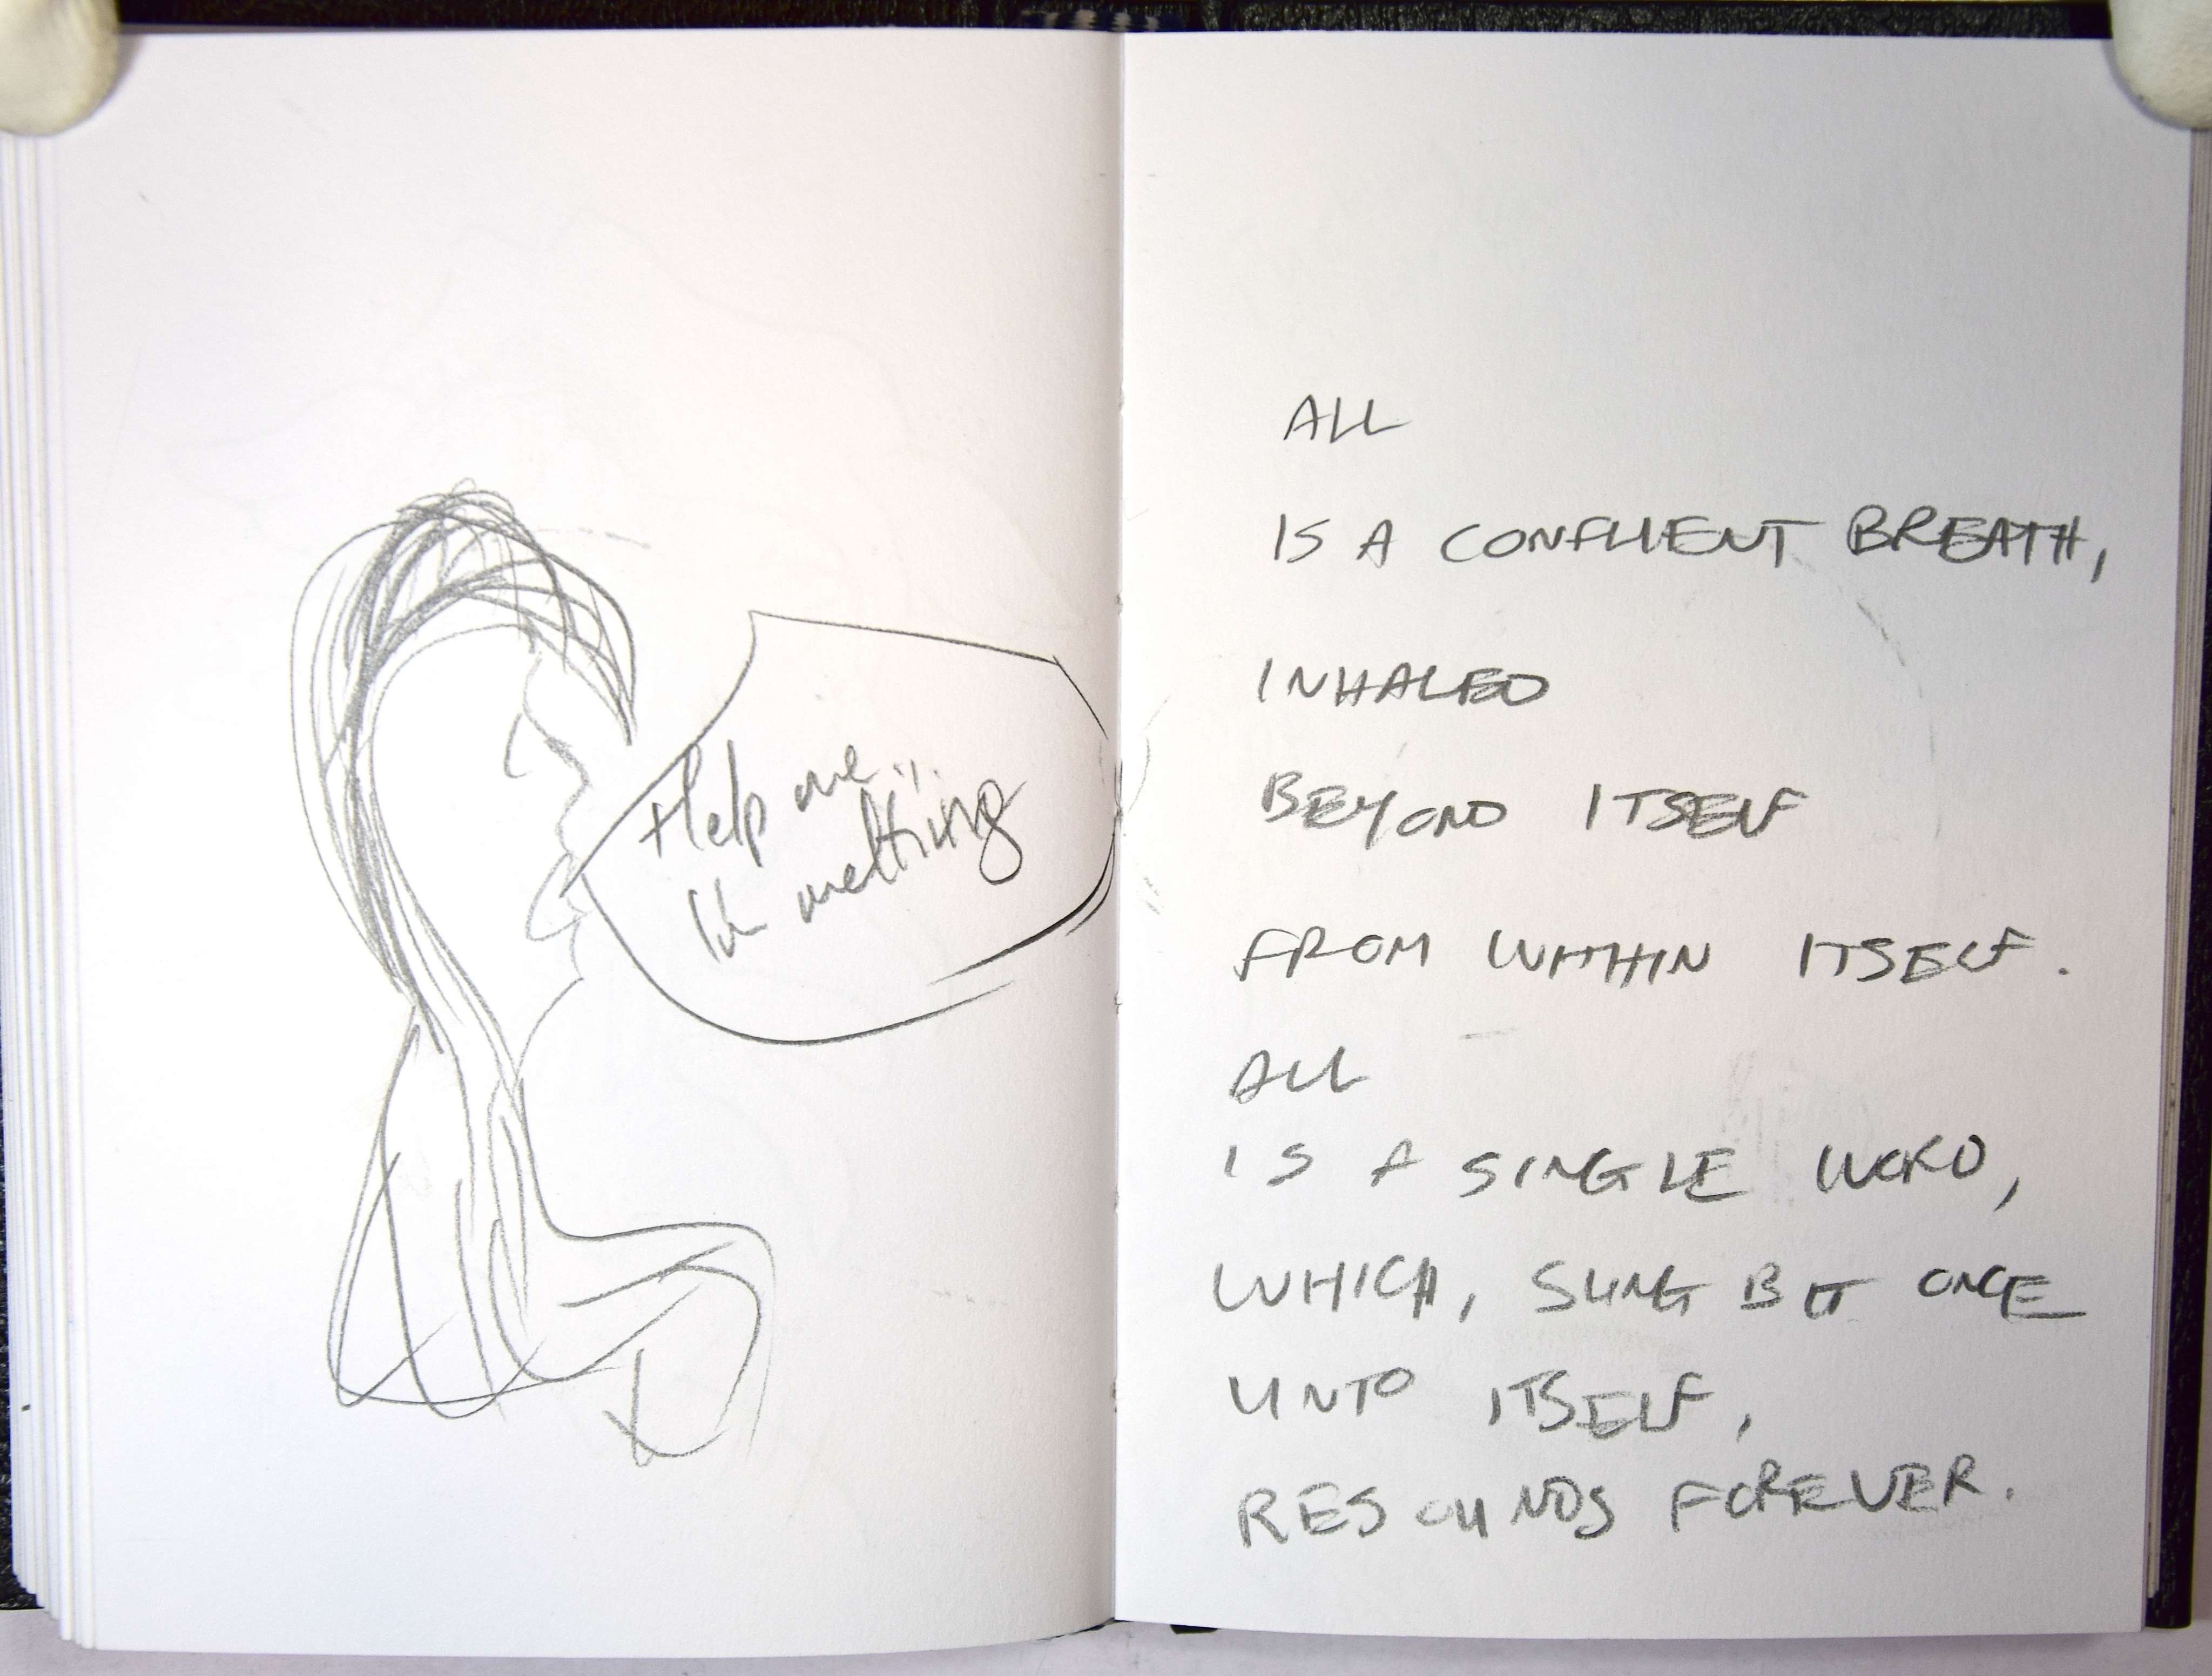 Help me...
I'm melting
ALL
IS A CONFLUENT BREATH,
INHALED
BEYOND ITSELF
FROM WITHIN ITSELF.
ALL
IS A SINGLE WORD,
WHICH, SUNG BUT ONCE
UNTO ITSELF,
RESOUNDS FOREVER.